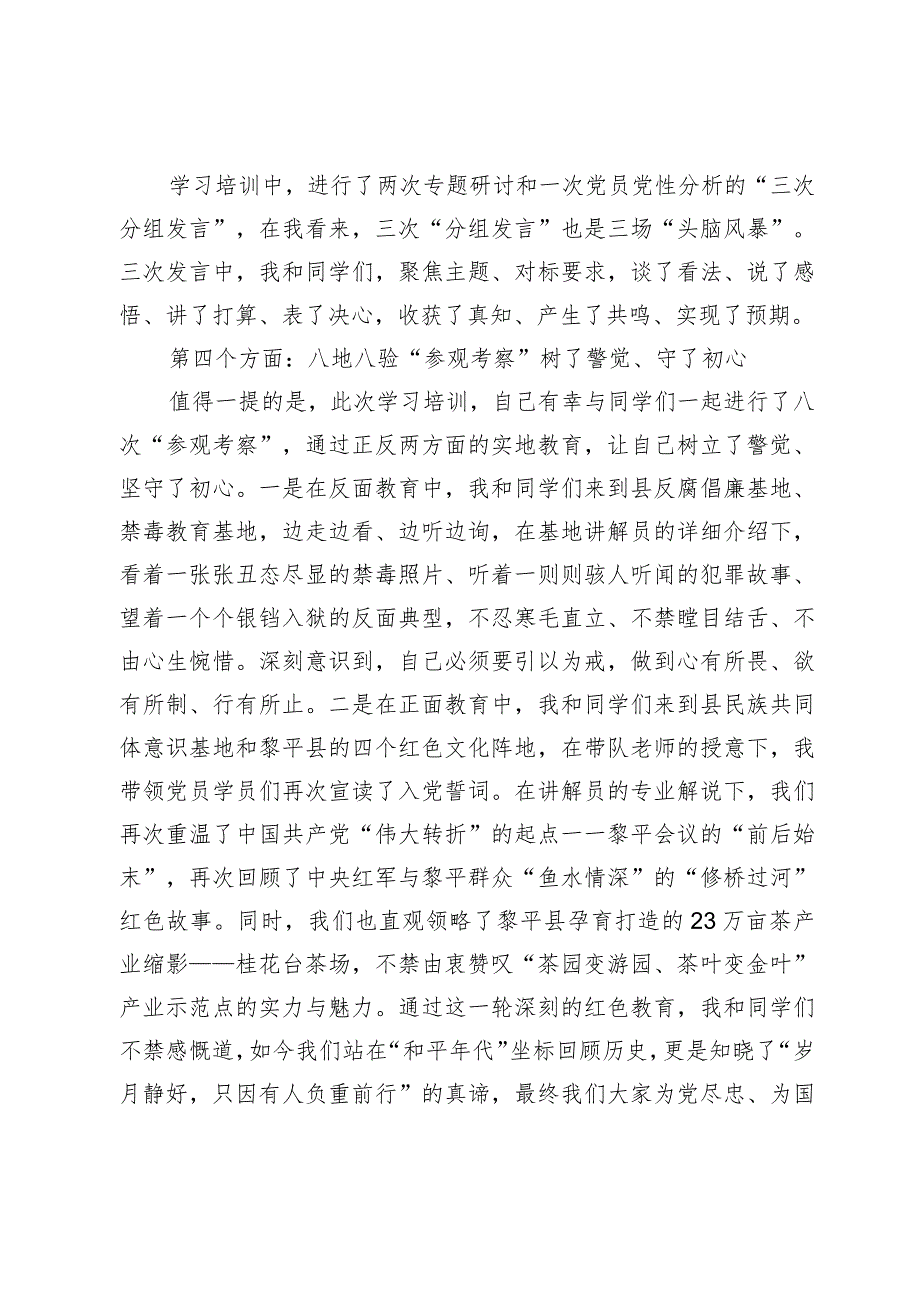 学习培训中，进行了两次专题研讨和一次党员党性分析的“三次
分组发言”，在我看来，三次“分组发言”也是三场“头脑风暴”。
三次发言中，我和同学们，聚焦主题、对标要求，谈了看法、说了感
悟、讲了打算、表了决心，收获了真知、产生了共鸣、实现了预期。
第四个方面：八地八验“参观考察”树了警觉、守了初心
值得一提的是，此次学习培训，自己有幸与同学们一起进行了八
次“参观考察”，通过正反两方面的实地教育，让自己树立了警觉、
坚守了初心。一是在反面教育中，我和同学们来到县反腐倡廉基地、
禁毒教育基地，边走边看、边听边询，在基地讲解员的详细介绍下，
看着一张张丑态尽显的禁毒照片、听着一则则骇人听闻的犯罪故事、
望着一个个银铛入狱的反面典型，不忍寒毛直立、不禁瞠目结舌、不
由心生惋惜。深刻意识到，自己必须要引以为戒，做到心有所畏、欲
有所制、行有所止。二是在正面教育中，我和同学们来到县民族共同
体意识基地和黎平县的四个红色文化阵地，在带队老师的授意下，我
带领党员学员们再次宣读了入党誓词。在讲解员的专业解说下，我们
再次重温了中国共产党“伟大转折”的起点一一黎平会议的“前后始
末”，再次回顾了中央红军与黎平群众“鱼水情深”的“修桥过河”
红色故事。同时，我们也直观领略了黎平县孕育打造的 23 万亩茶产
业缩影——桂花台茶场，不禁由衷赞叹“茶园变游园、茶叶变金叶”
产业示范点的实力与魅力。通过这一轮深刻的红色教育，我和同学们
不禁感慨道，如今我们站在“和平年代”坐标回顾历史，更是知晓了“岁
月静好，只因有人负重前行”的真谛，最终我们大家为党尽忠、为国